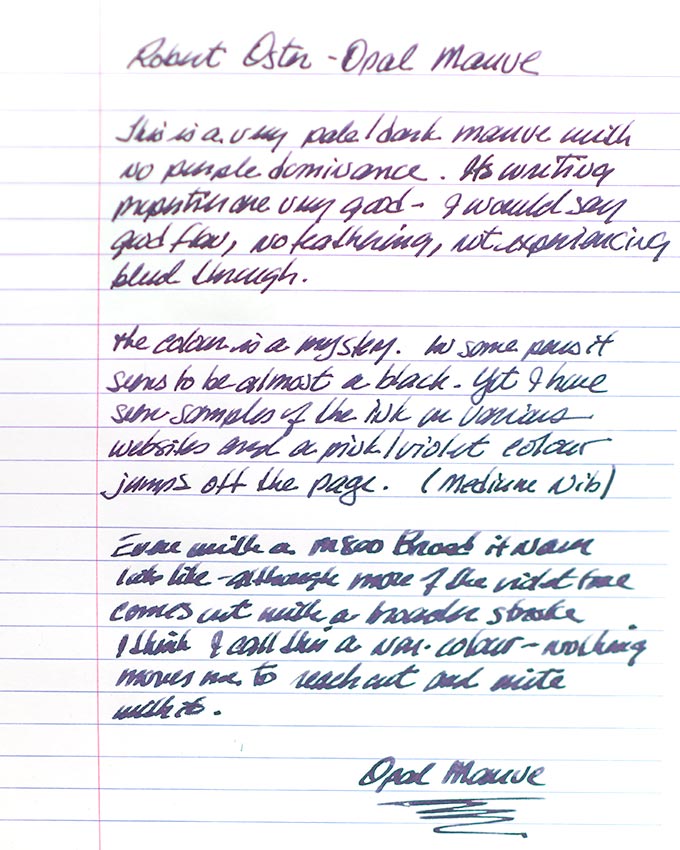 Robert Oster - Opal Mauve
This is a very pale/dark mauve with
no purple dominance. Its writing
properties are very good - I would say
good flow, no feathering, not experiencing
bleed through.
The colour is a mystery. In some pens it
seems to be almost a black. Yet I have
seen samples of the ink on various
websites and a pink/violet colour
jumps off the page. (Medium Nib)
Even with a M800 Broad it
looks like - although more of the violet tone
comes out with a broader stroke
I think I call this a non-colour - nothing
moves me to reach out and write
with it.
Opal Mauve